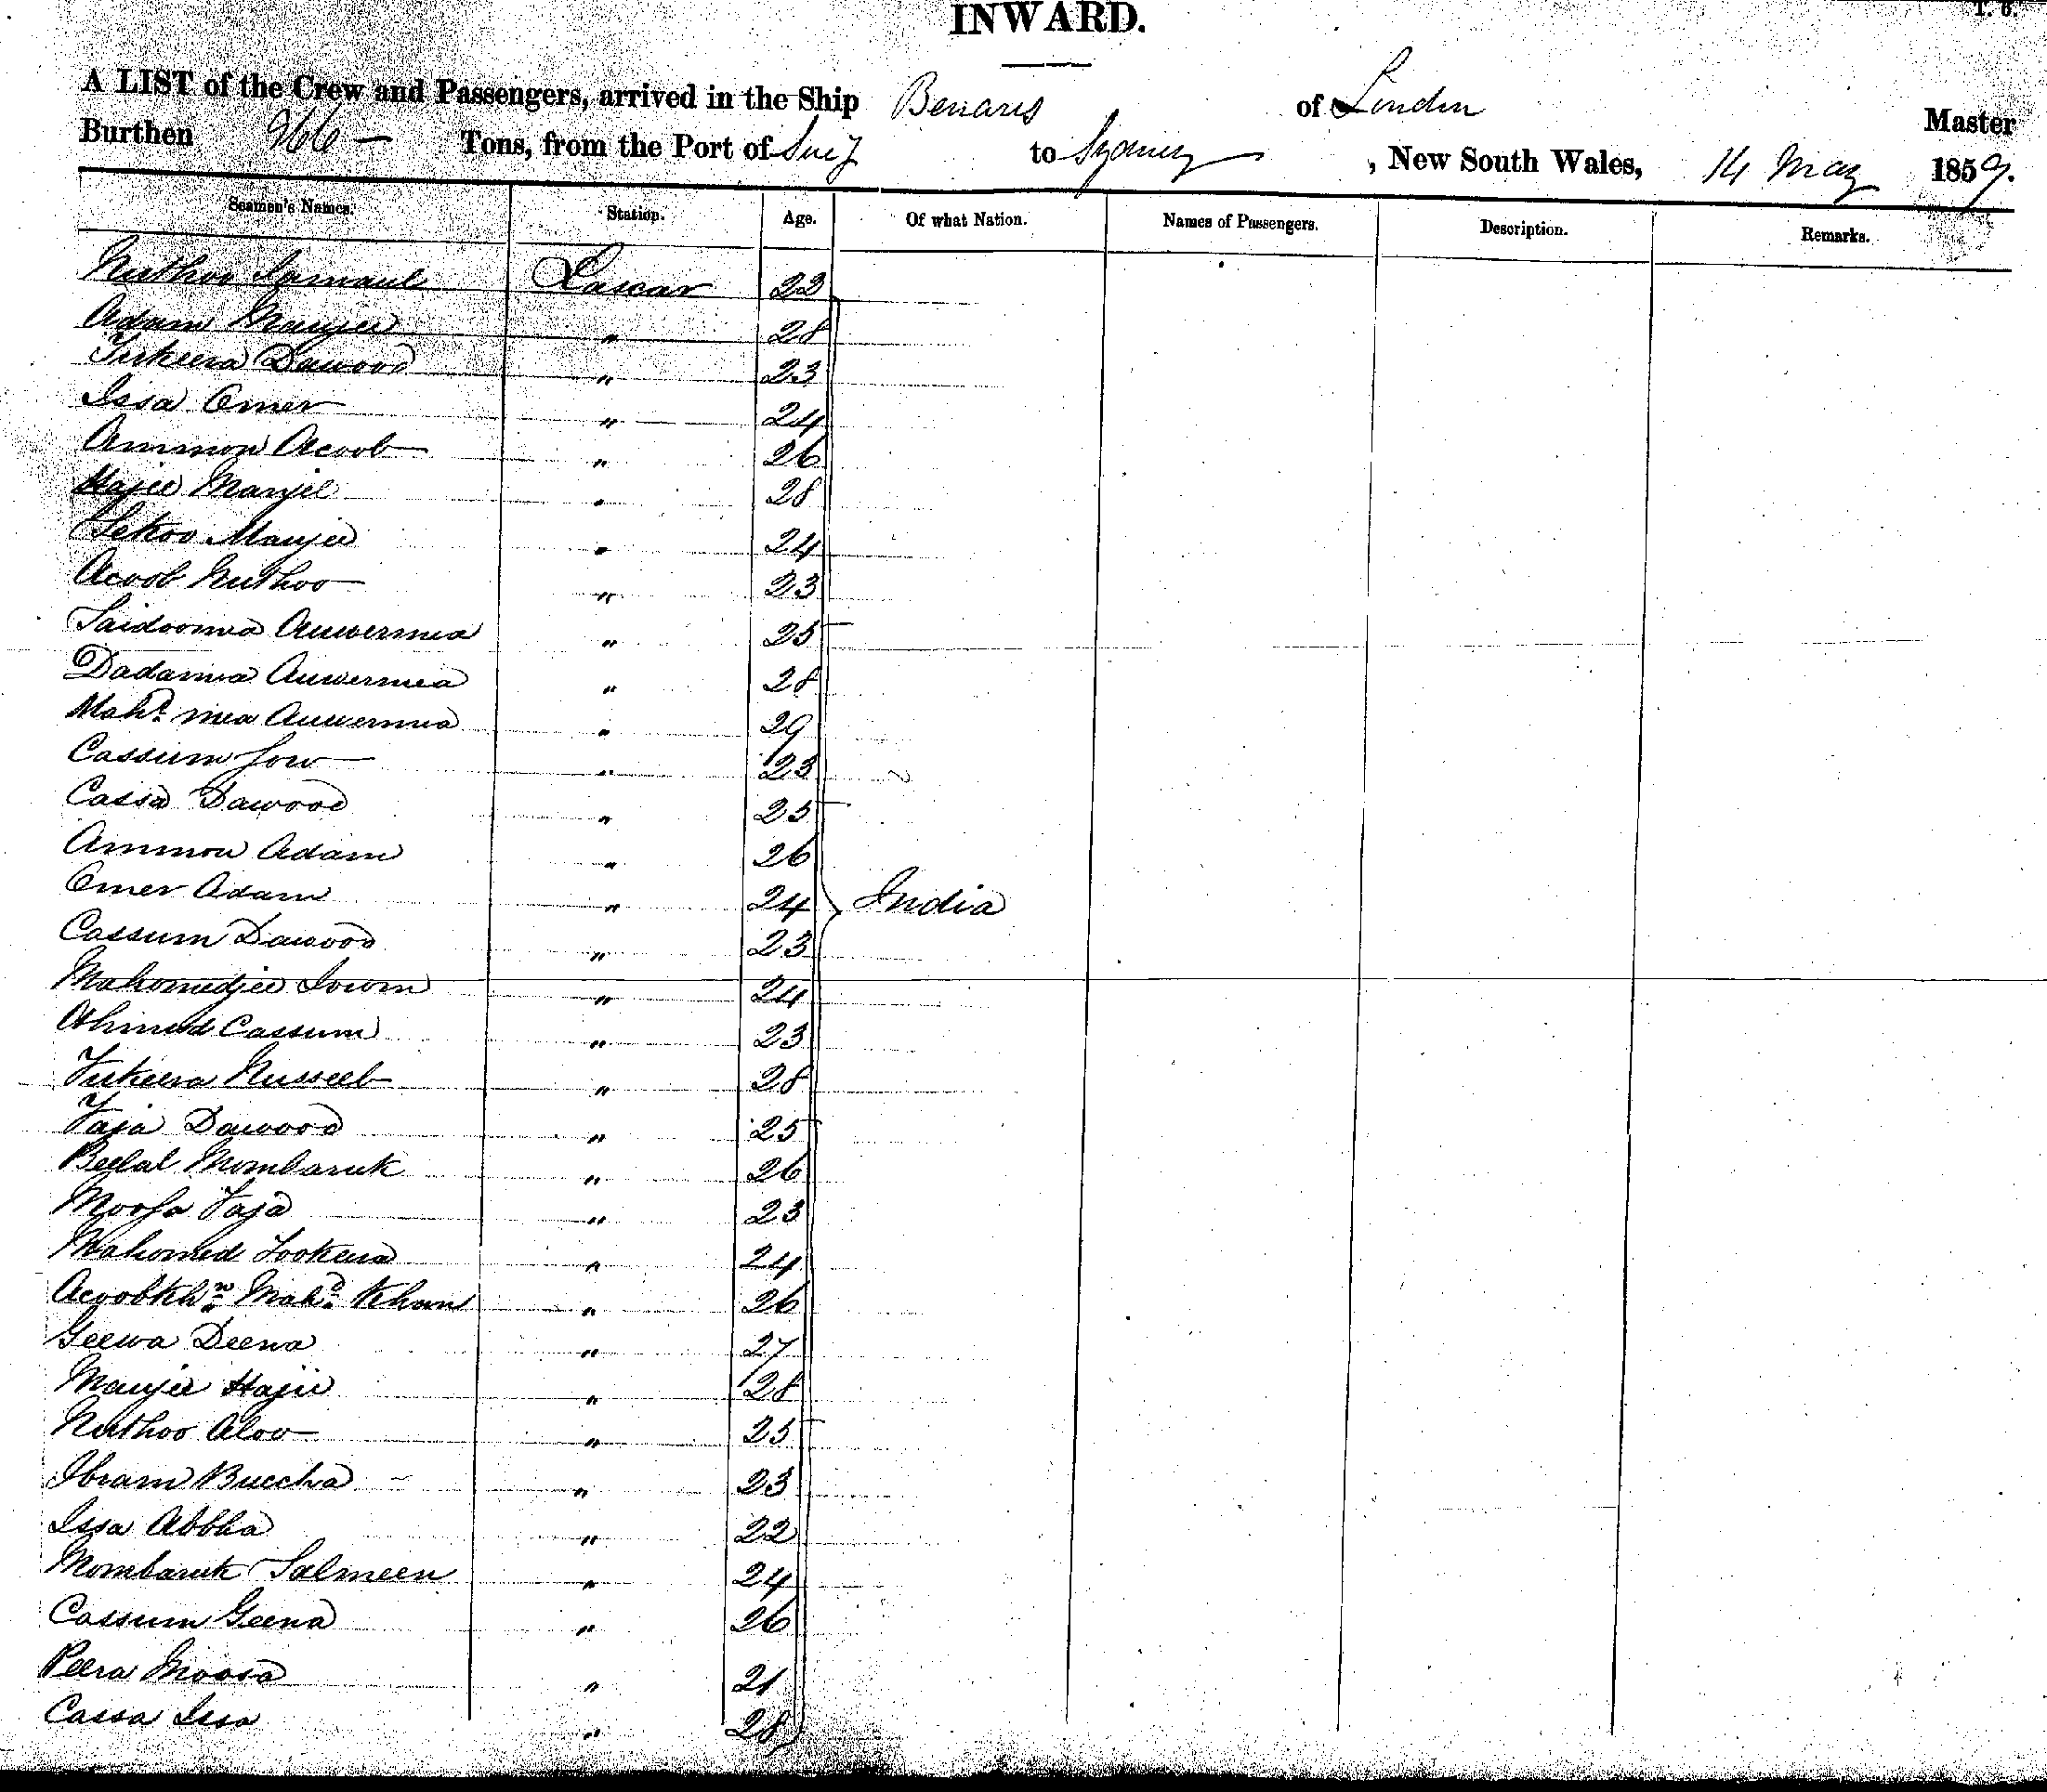 INWARD.
A LIST of the Crew and Passengers, arrived in the Ship Benares of London Master
Burthen Tons, from the Port of Suez to Sydney, New South Wales, 14 May 1859.
Seamen's Names. Station. Age. Of what Nation. Names of Passengers. Description. Remarks.
Nuthoo Ismaul Lascar 22
Adam Manjee " 28
Fukeera Dawood " 23
Issa Omer " 24
Ammon Acoob " 26
Hajee Manjee " 28
Sekoo Manjee " 24
Acoob Nuthoo " 23
Saidoomea Auwermea " 25
Dadamea Auwermea " 28
Mahd. mea Auwermea " 29
Cassum " 23
Cassa Dawood " 25
Ammon Adam " 26
Omer Adam " 24 India
Cassum Dawood " 23
Mahomedjee " 24
Ahmed Cassum " 23
Fukeera Nusseeb " 28
Faja Dawood " 25
Beelal Mombaruk " 26
Moosa Faja " 23
Mahomed Fookeera " 24
Acoobkhn. Mahd. Khan " 26
Geewa Deena " 27
Manjee Hajee " 28
Nuthoo Aloo " 25
Ibram Buccha " 23
Issa Abbha " 22
Mombaruk Salmeen " 24
Cassum Geena " 26
Peera Moosa " 21
Cassa Issa " 28